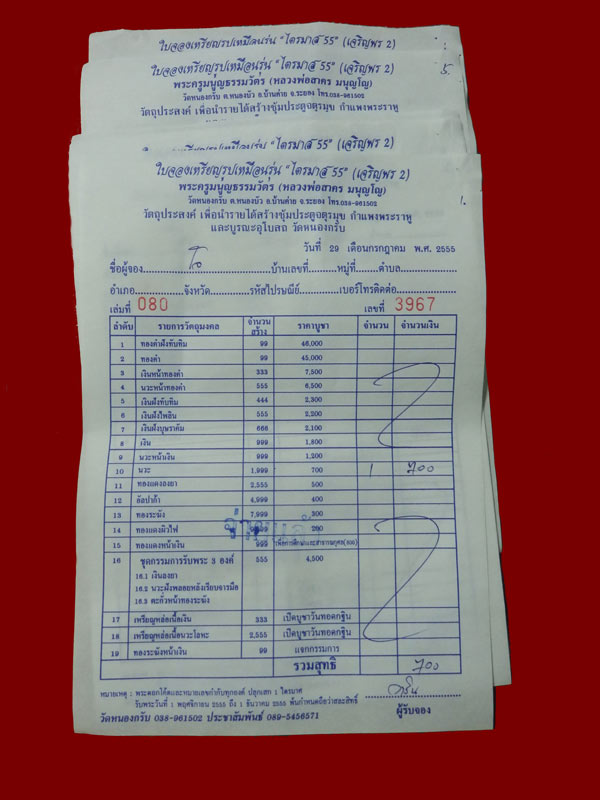 ใบจองเหรียญรูปเหมือนรุ่น "ไตรมาส 55" (เจริญพร 2)
ใบจองเหรียญรูปเหมือนรุ่น "ไตรมาส 55" (เจริญพร 2)
5.
พระครูมนูญธรรมวัตร (หลวงพ่อสาคร มนุญโญ)
วัดหนองกรับ ต.หนองบัว อ.บ้านค่าย จ.ระยอง โทร.038-961502
วัตถุประสงค์ เพื่อนำรายได้สร้างซุ้มประตูจตุรมุข กำแพงพระราหู
รูปเหมือนรุ่น "ไตรมาส 55" (เจริญพร 2)
ใบจองเหรียญรูปเหมือนรุ่น "ไตรมาส 55" (เจริญพร 2)
พระครูมนูญธรรมวัตร (หลวงพ่อสาคร มนุญโญ)
วัดหนองกรับ ต.หนองบัว อ.บ้านค่าย จ.ระยอง โทร.038-961502
1.
วัตถุประสงค์ เพื่อนำรายได้สร้างซุ้มประตูจตุรมุข กำแพงพระราหู
และบูรณะอุโบสถ วัดหนองกรับ
วันที่ 29 เดือนกรกฎาคม พ.ศ. 2555
ชื่อผู้จอง โอ บ้านเลขที่ หมู่ที่ ตำบล
อำเภอ จังหวัด รหัสไปรษณีย์ เบอร์โทรติดต่อ
เล่มที่ 080 เลขที่ 3967
ลำดับ รายการวัตถุมงคล จำนวนสร้าง ราคาบูชา จำนวน จำนวนเงิน
1 ทองคำฝังทับทิม 99 46,000
2 ทองคำ 99 45,000
3 เงินหน้าทองคำ 333 7,500
4 นวะหน้าทองคำ 555 6,500
5 เงินฝังทับทิม 444 2,300
6 เงินฝังไพลิน 555 2,200
7 เงินฝังบุษราคัม 666 2,100
8 เงิน 999 1,800
9 นวะหน้าเงิน 999 1,200
10 นวะ 1,999 700 1 700
11 ทองแดงลงยา 2,555 500
12 อัลปาก้า 4,999 400
13 ทองระฆัง 7,999 300
14 ทองแดงผิวไฟ 200
จ่ายแล้ว
15 ทองแดงหน้าเงิน 999
16 ชุดกรรมการรับพระ 3 องค์ 555 4,500
16.1 เงินลงยา
16.2 นวะฝังพลอยหลังเรียบจารมือ
16.3 ตะกั่วหน้าทองระฆัง
17 เหรียญหล่อเนื้อเงิน 333 เปิดบูชาวันทอดกฐิน
18 เหรียญหล่อเนื้อนวะโลหะ 2,555 เปิดบูชาวันทอดกฐิน
19 ทองระฆังหน้าเงิน 99 แจกกรรมการ
รวมสุทธิ 700
หมายเหตุ : พระตอกโค๊ตและหมายเลขกำกับทุกองค์ ปลุกเสก 1 ไตรมาศ
รับพระวันที่ 1 พฤศจิกายน 2555 ถึง 1 ธันวาคม 2555 พ้นกำหนดถือว่าสละสิทธิ์
ผู้รับจอง
วัดหนองกรับ 038-961502 ประชาสัมพันธ์ 089-5456571